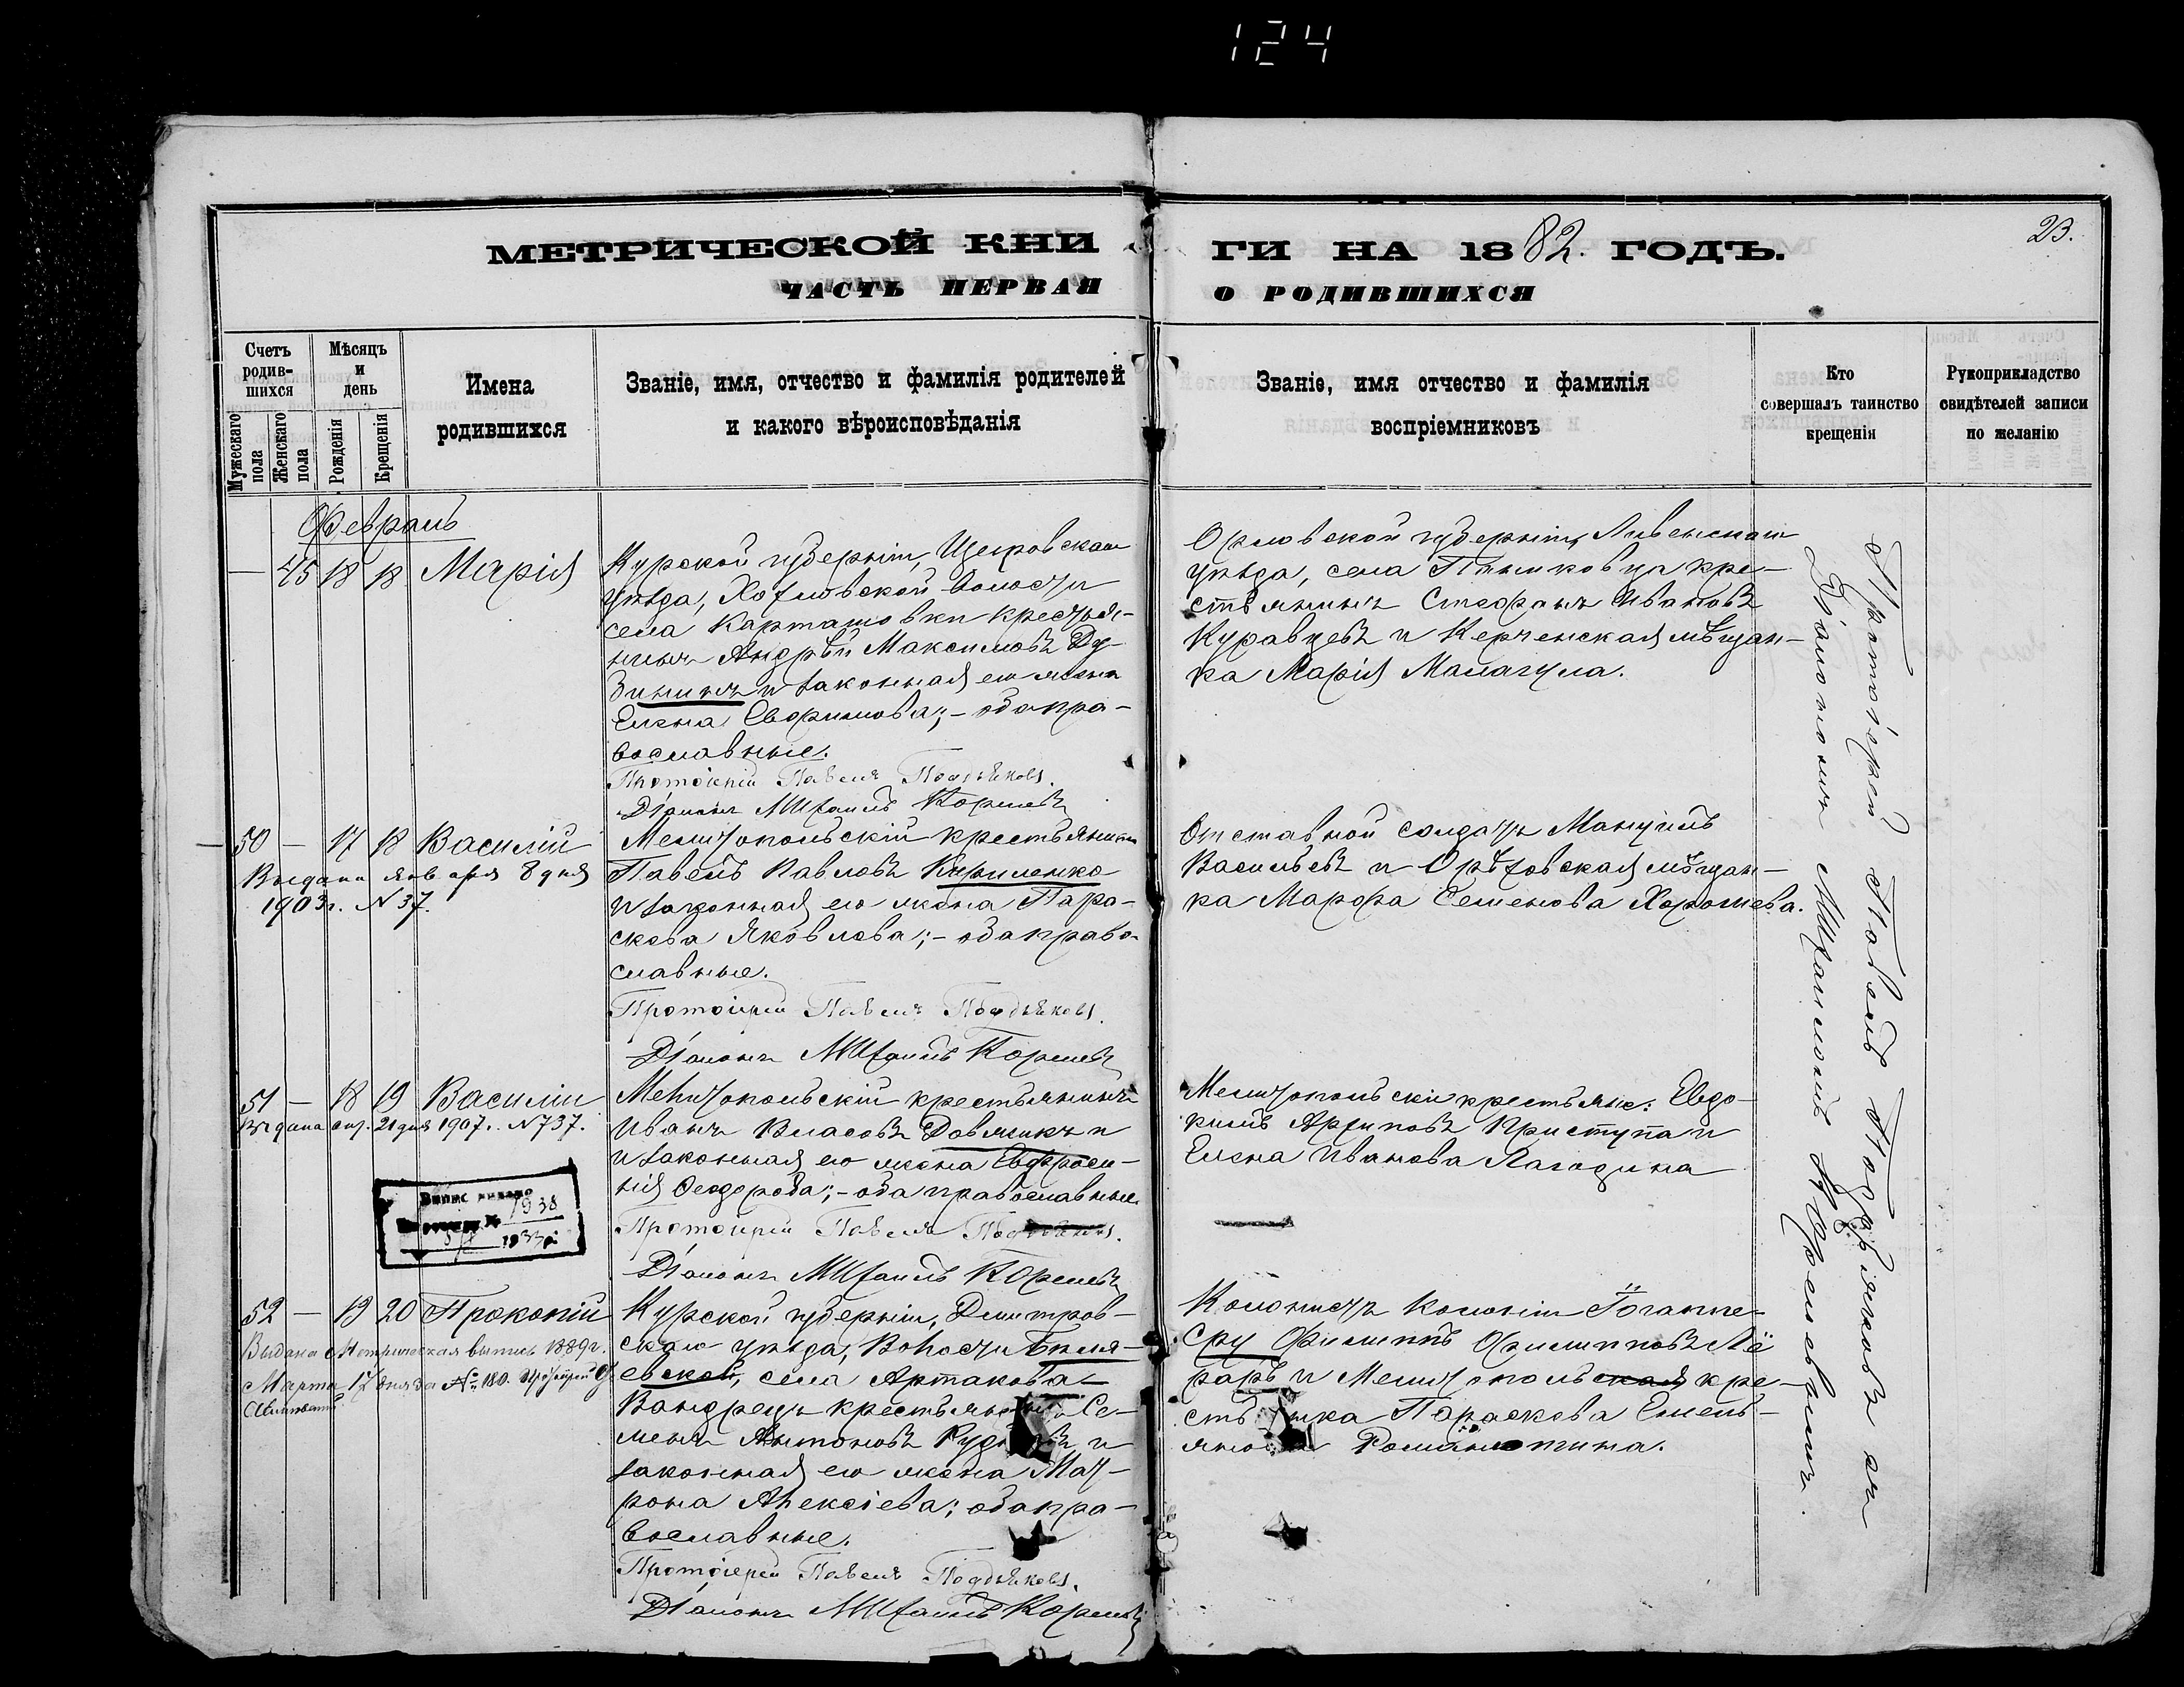 124
МЕТРИЧЕСКОЙ КНИ
ГИ НА 1882. ГОДЪ.
23.
ЧАСТЬ ПЕРВАЯ
О РОДИВШИХСЯ
Счетъ родив-шихся
Мужескаго пола
Женскаго пола
Мѣсяцъ и день
Рожденія
Крещенія
Имена родившихся
Званіе, имя, отчество и фамилія родителей
и какого вѣроисповѣданія
Званіе, имя отчество и фамилія
воспріемниковъ
Кто
совершалъ таинство
крещенія
Рукоприкладство
свидѣтелей записи
по желанію
Февраль
— 45 18 18 Марія
Курской губерніи, Щегровскаго
уѣзда, Хохловской волости
села Карташовки крестья-
нинъ Андрей Максимовъ Ду-
зининъ и законная его жена
Елена Евфимова; – оба пра-
вославные.
Протоіерей Павелъ Поддьяковъ.
Діаконъ Михаилъ Корнев
Орловской губерніи, Ливенскаго
уѣзда, села крe-
стьянинъ Стефанъ Ивановъ
Куравцевъ и Керченская мѣщан-
ка Марія Малагула.
50 — 17 18 Василій
Выдана января 8 дня
1903г. N 37.
Мелитопольскій крестьянинъ
Павелъ Павловъ Кириленко
и законная его жена Пара-
скева Яковлева; – оба право-
славные.
Протоіерей Павелъ Поддьяковъ.
Діаконъ Михаилъ Корнев
Отставной солдатъ Мануилъ
Васильевъ и Орѣховская мѣщан-
ка Марфа Семенова Хорошева.
51 — 18 19 Василій
Выдана 21 дня 1907г. N 737.
1938
193
Мелитопольскій крестьянинъ
Иванъ Власовъ Довжикъ и
и законная его жена Евфроси-
нія Феодорова; – оба православные
Протоіерей Павелъ
Діаконъ Михаилъ Корнев
Мелитопольскіе крестьяне: Евдо-
кимъ Архиповъ Приступа и
Елена Иванова Лагодина
52 — 19 20 Прокопій
Выдана Метрическая выпись 1889г.
Марта 17 дня за № 180.
Курской губерніи, Дмитров-
скаго уѣзда, Волости Беля-
евской, села Артакова
крестьянинъ Се-
менъ Антоновъ и
законная его жена Мат-
рона Алексіева; оба пра-
вославные.
Протоіерей Павелъ Поддьяковъ.
Діаконъ Михаилъ Корнев
Колонистъ колоніи Іоганне-
сру Филиппъ Филипповъ Лё
и Мелитопольская кре-
стьянка Параскева Емель-
янова
Протоіерей Павелъ Поддьяковъ съ
Діакономъ Михаиломъ